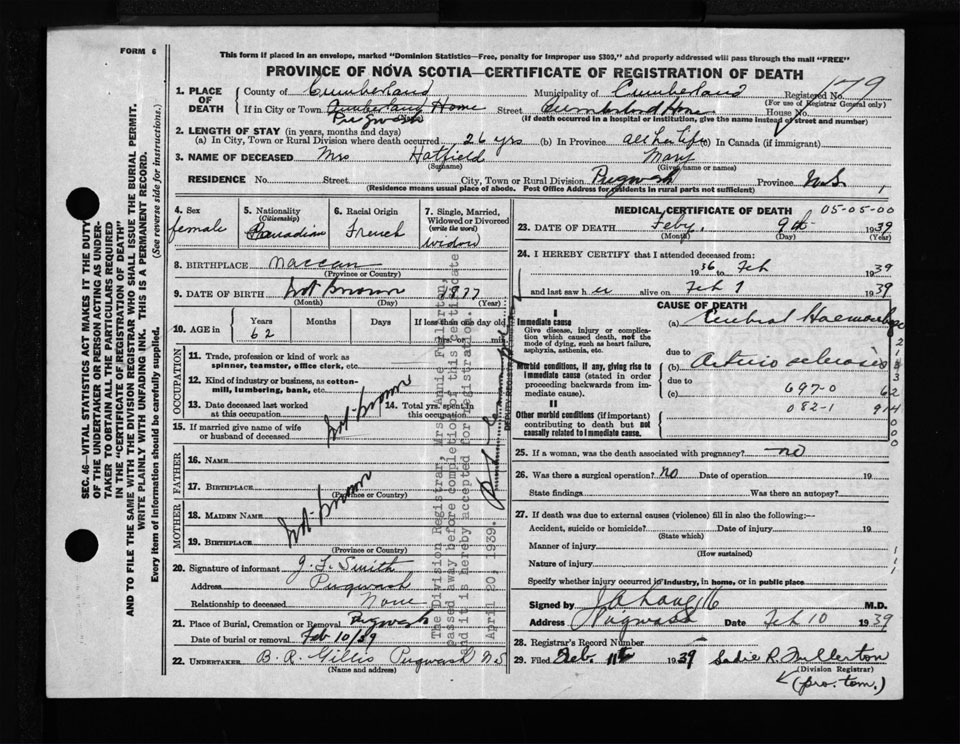 FORM 6
This form if placed in an envelope, marked "Dominion Statistics—Free, penalty for improper use $300," and properly addressed will pass through the mail "FREE"
PROVINCE OF NOVA SCOTIA—CERTIFICATE OF REGISTRATION OF DEATH
179
1. PLACE OF DEATH
County of Cumberland Municipality of Cumberland Registered No.
(For use of Registrar General only)
If in City or Town Cumberland Home Pugwash Street Cumberland Home House No.
(If death occurred in a hospital or institution, give the name instead of street and number)
2. LENGTH OF STAY (in years, months and days)
(a) In City, Town or Rural Division where death occurred 26 yrs (b) In Province all her life (c) In Canada (if immigrant)
3. NAME OF DECEASED Mrs Hatfield Mary
(Surname) (Given name or names)
RESIDENCE No. Street City, Town or Rural Division Pugwash Province N.S.
(Residence means usual place of abode. Post Office Address for residents in rural parts not sufficient)
1
4. Sex
female
5. Nationality
(Citizenship)
Canadian
6. Racial Origin
French
7. Single, Married, Widowed or Divorced
(write the word)
widow
8. BIRTHPLACE Maccan
(Province or Country)
9. DATE OF BIRTH Not Known 1877
(Month) (Day) (Year)
10. AGE in
Years Months Days If less than one day old
62
hrs. min.
OCCUPATION
11. Trade, profession or kind of work as spinner, teamster, office clerk, etc.
12. Kind of industry or business, as cotton-mill, lumbering, bank, etc.
13. Date deceased last worked at this occupation
14. Total yrs. spent in this occupation
Not known
15. If married give name of wife or husband of deceased
FATHER
16. Name
17. Birthplace
(Province or Country)
MOTHER
18. Maiden Name
19. Birthplace
(Province or Country)
Not known
20. Signature of informant J. F. Smith
Address Pugwash
Relationship to deceased None
21. Place of Burial, Cremation or Removal Pugwash
Date of burial or removal Feb 10/39
22. UNDERTAKER B. R. Gillis Pugwash NS
(Name and address)
MEDICAL CERTIFICATE OF DEATH
05-05-00
23. DATE OF DEATH Feby. 9th 1939
(Month) (Day) (Year)
24. I HEREBY CERTIFY that I attended deceased from:
1936 to Feb 1939
and last saw her alive on Feb 7 1939
CAUSE OF DEATH
I
Immediate cause
Give disease, injury or complication which caused death, not the mode of dying, such as heart failure, asphyxia, asthenia, etc.
Morbid conditions, if any, giving rise to immediate cause (stated in order proceeding backwards from immediate cause).
II
Other morbid conditions (if important) contributing to death but not causally related to immediate cause.
(a) Cerebral Haemorrhage
due to
(b) Arterio sclerosis
due to
(c) 697-0
082-1
62
914
25. If a woman, was the death associated with pregnancy? no
26. Was there a surgical operation? no Date of operation 19
State findings Was there an autopsy?
27. If death was due to external causes (violence) fill in also the following:—
Accident, suicide or homicide? Date of injury 19
(State which)
Manner of injury
(How sustained)
Nature of injury
Specify whether injury occurred in industry, in home, or in public place
Signed by M.D.
Address Pugwash Date Feb 10 1939
28. Registrar's Record Number
29. Filed Feb. 11th 1939 Sadie R. Fullerton
(Division Registrar)
(pro. tem.)
The Division Registrar, Mrs. Annie Fullerton,
passed away before completion of this certificate
and it is hereby accepted for registration.
April 20, 1939.
DEPUTY REGISTRAR
SEC. 46—VITAL STATISTICS ACT MAKES IT THE DUTY
OF THE UNDERTAKER OR PERSON ACTING AS UNDER-
TAKER TO OBTAIN ALL THE PARTICULARS REQUIRED
IN THE "CERTIFICATE OF REGISTRATION OF DEATH"
AND TO FILE THE SAME WITH THE DIVISION REGISTRAR WHO SHALL ISSUE THE BURIAL PERMIT.
WRITE PLAINLY WITH UNFADING INK. THIS IS A PERMANENT RECORD.
Every item of Information should be carefully supplied. (See reverse side for instructions.)